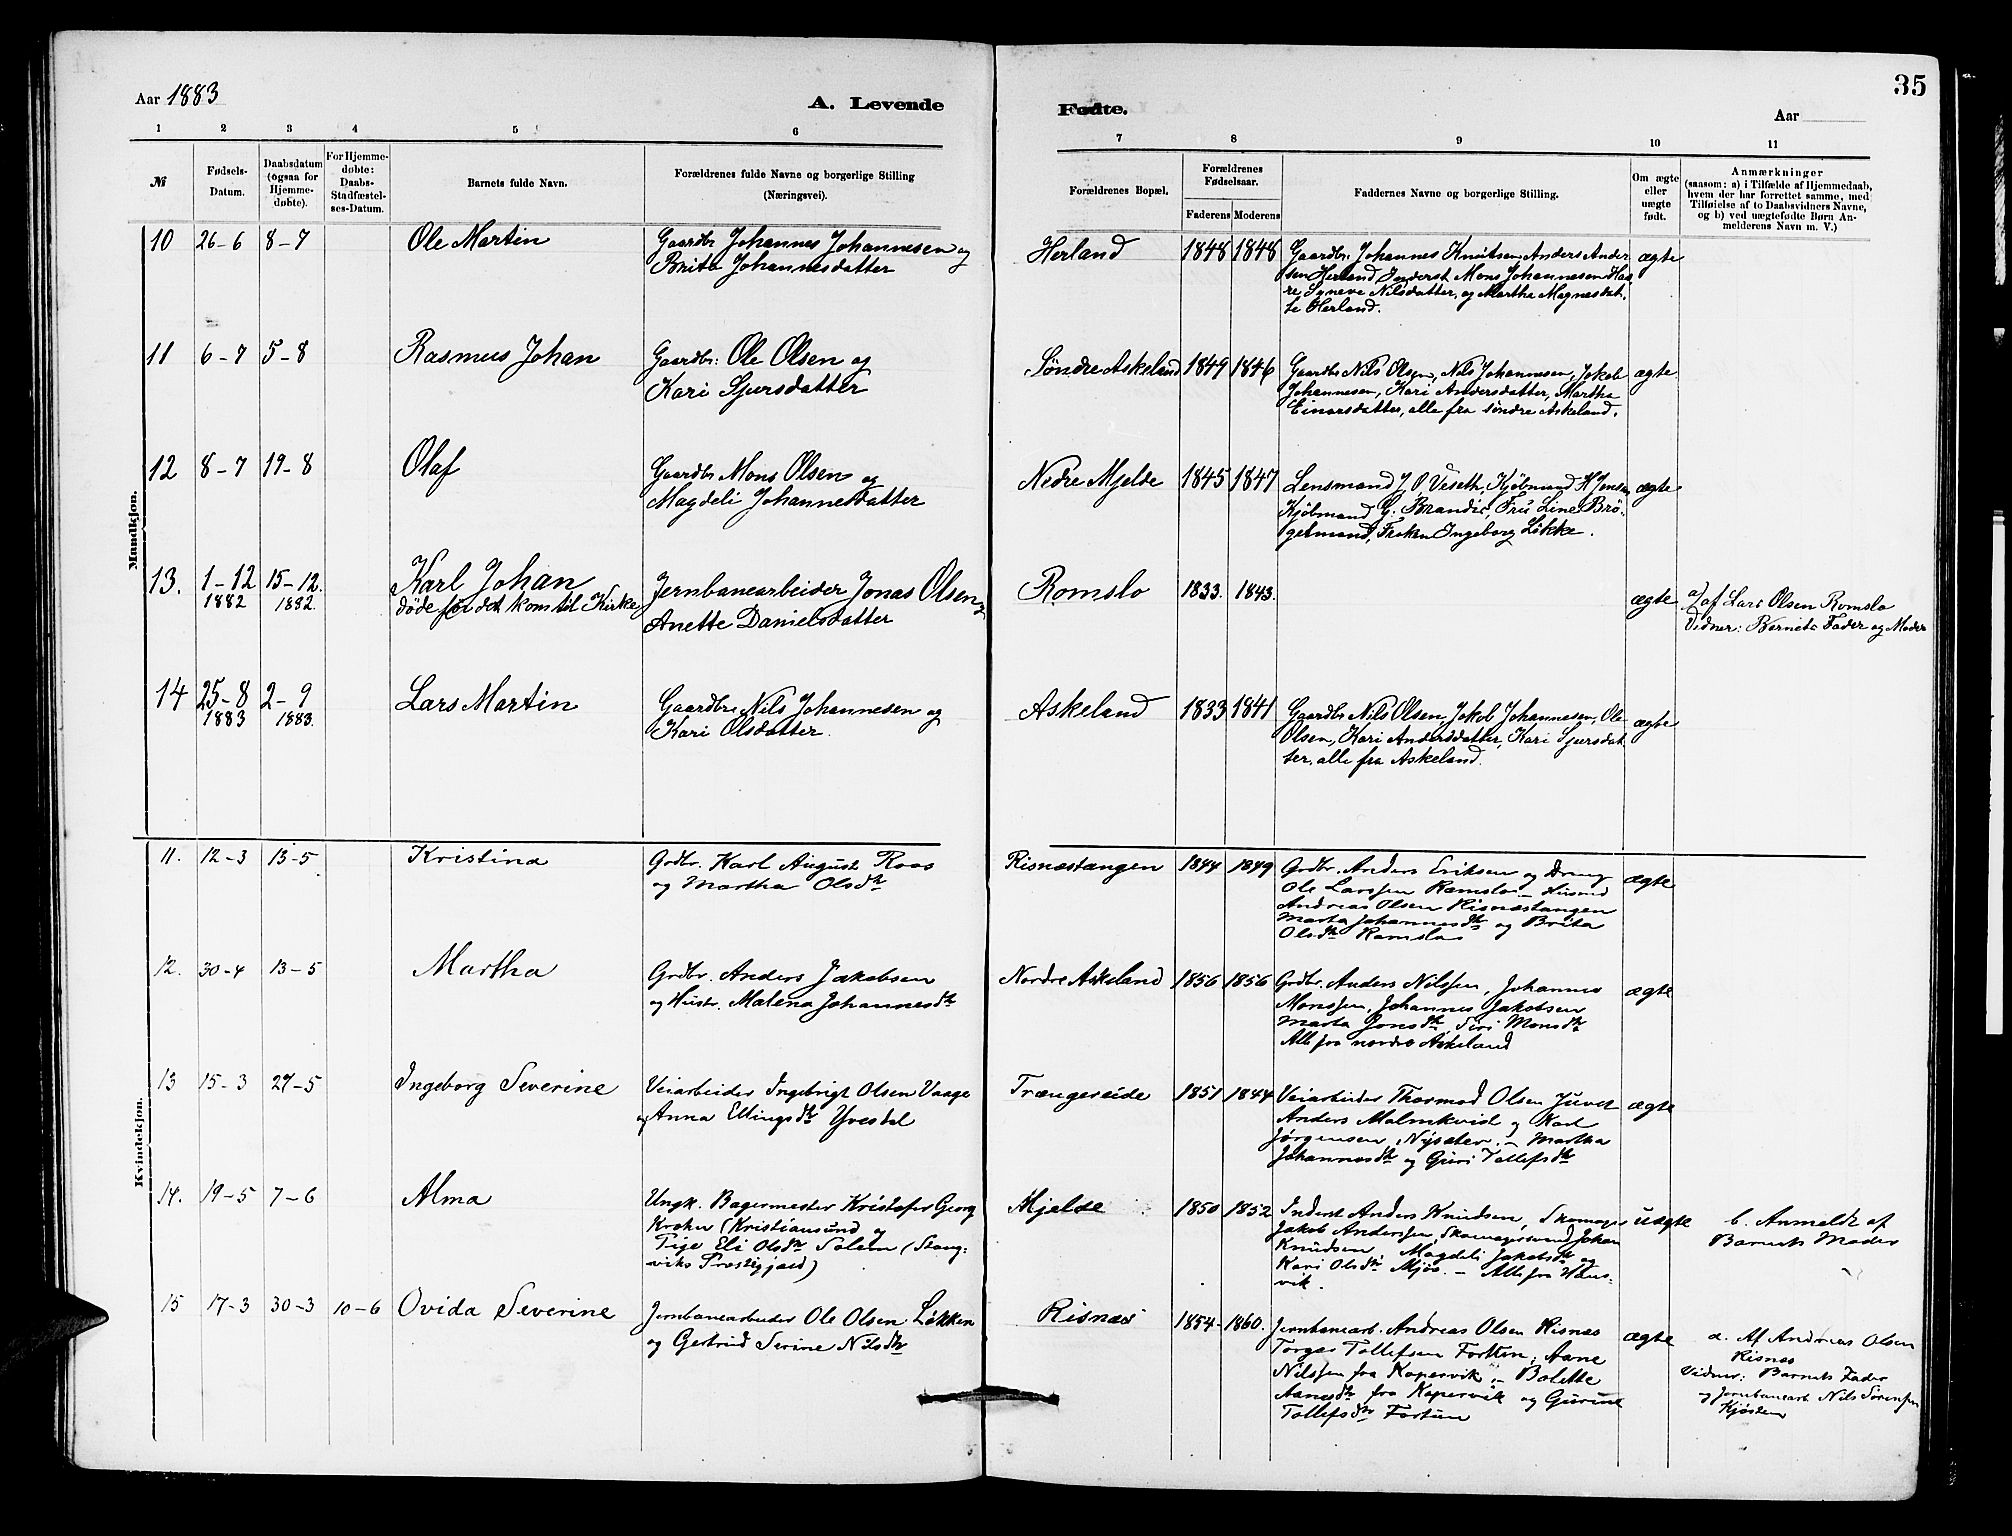 35
Aar 1883
A. Levende
Fødte.
Aar
1 2 3 4 5 6 7 8 9 10 11
№
Fødsels-
Datum.
Daabsdatum
(ogsaa for
Hjemme-
døbte).
For Hjemme-
døbte:
Daabs-
Stadfæstel-
ses-Datum.
Barnets fulde Navn.
Forældrenes fulde Navne og borgerlige Stilling
(Næringsvei).
Forældrenes Bopæl.
Forældrenes
Fødselsaar.
Faderens Moderens
Faddernes Navne og borgerlige Stilling.
Om ægte
eller
uægte
født.
Anmærkninger
(saasom: a) i Tilfælde af Hjemmedaab,
hvem der har forrettet samme, med
Tilføielse af to Daabsvidners Navne,
og b) ved uægtefødte Børn An-
melderens Navn m. V.)
Mandkjøn.
10 26-6 8-7 Ole Martin
Gaardbr Johannes Johannesen og
Brita Johannesdatter
Herland 1848 1848
Gaardbr: Johannes Knutsen, Anders Ander
sen Herland, Inderst Mons Johannesen Haa
re Syneve Nilsdatter, og Martha Magnesdat-
te Herland.
ægte
11 6-7 5-8 Rasmus Johan
Gaardbr: Ole Olsen og
Kari Sjursdatter
Søndre Askeland 1849 1846
Gaardbr Nils Olsen, Nils Johannesen, Jakob
Johannesen, Kari Andersdatter, Martha
Einarsdatter, alle fra søndre Askeland.
ægte
12 8-7 19-8 Olaf
Gaardbr Mons Olsen og
Magdeli Johannesdatter
Nedre Mjelde 1845 1847
Lensmand J. O. Veseth, Kjøbmand H Jensen
Kjøbmand G. Brandis, Fru Line Brø-
gelmand, Frøken Ingeborg Løkke.
ægte
13. 1-12 15-12.
1882 1882.
Karl Johan
døde før det kom til Kirke
Jernbanearbeider Jonas Olsen og
Anette Danielsdatter
Romslo 1833. 1843.
ægte
a/ af Lars Olsen Romslo
Vidner: Barnets Fader og Moder
14 25-8 2-9
1883 1883.
Lars Martin
Gaardbr Nils Johannesen og
Kari Olsdatter.
Askeland 1833 1841
Gaardbr Nils Olsen, Jakob Johannesen, Ole
Olsen, Kari Andersdatter, Kari Sjursdat
ter, alle fra Askeland.
ægte
Kvindekjøn.
11. 12-3 13-5 Kristina
Grdbr. Karl August Roos
og Martha Olsdtr
Risnæstangen 1844 1849
Grdbr. Anders Eriksen og Dreng
Ole Larssen Ramslo – Husmd
Andreas Olsen Risnæstangen
Marta Johannesdtr og Brita
Olsdtr Ramslo
ægte
12. 30-4 13-5 Martha
Grdbr. Anders Jakobsen
og Hustr. Malena Johannesdtr
Nordre Askeland 1856 1856
Grdbr. Anders Nilssen, Johannes
Monssen, Johannes Jakobsen
Marta Jonsdtr, Siri Monsdtr
Alle fra nordre Askeland
ægte
13 15-3 27-5 Ingeborg Severine
Veiarbeider Ingebrigt Olsen Vaage
og Anna Ellingsdtr Yvesdal
Trængereide 1851 1844
Veiarbeider Thormod Olsen Juvet
Anders Malmkvist og Karl
Jørgensen, Nysæter. – Martha
Johannesdtr og Guri Tollefsdtr
ægte
14. 19-5 7-6 Alma
Ungk. Bagermester Kristofer Georg
Krohn (Kristiansund og
Pige Eli Olsdtr Solem (Stang-
viks Prestegjæld)
Mjelde 1850 1852
Inderst Anders Knudsen, Skomager
Jakob Anderssen, Skomagersvend Johan
Knudsen, Magdeli Jakobsdtr og
Kari Olsdtr Mjøs. – Alle fra Haus-
vik.
uægte
b. Anmeldt af
Barnets Moder
15 17-3 30-3 10-6 Ovida Severine
Jernbanearbeider Ole Olsen Løkken
og Gertrud Serine Nilsdtr
Risnæs 1854. 1860.
Jernbanearb. Andreas Olsen Risnæs
Torger Tollefsen Fortun, Aane
Nilssen fra Kopervik. – Bolette
Aanesdtr fra Kopervik og Gurine
Tollefsdtr Fortun
ægte
a. Af Andreas Olsen
Risnæs
Vidner: Barnets Fader
og Jernbanearb. Nils Sørensen